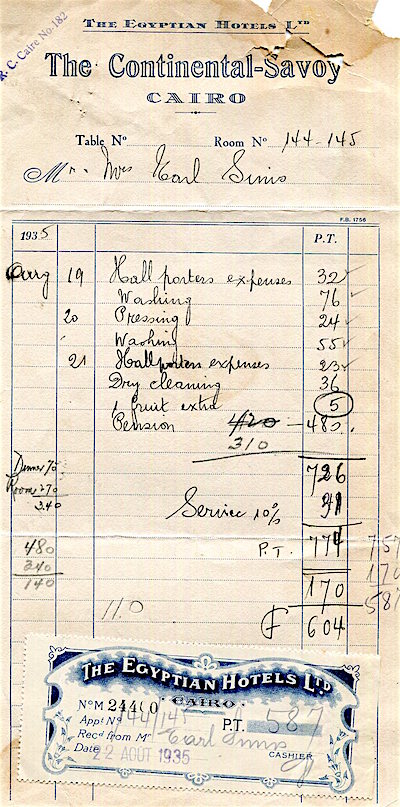 R.C. Caire No. 182
THE EGYPTIAN HOTELS LTD
The Continental-Savoy
CAIRO
Table No Room No 144-145
Mr. Mrs Karl Sims
F.B. 1756
1935 P.T.
Aug 19 Hall porters expenses 32
Washing 76
20 Pressing 24
Washing 55
21 Hall porters expenses 23
Dry cleaning 36
1 fruit extra 5
Pension 420 — 480.
310
Dinner 70
Room 270
340
726
Service 10%
480 P.T. 774 757
340 170
140 170 587
110 604
THE EGYPTIAN HOTELS LTD
CAIRO
No M 24400
Appt No 144/145 P.T. 587
Recd from Mr Carl Sims
Date 22 AOUT 1935 CASHIER